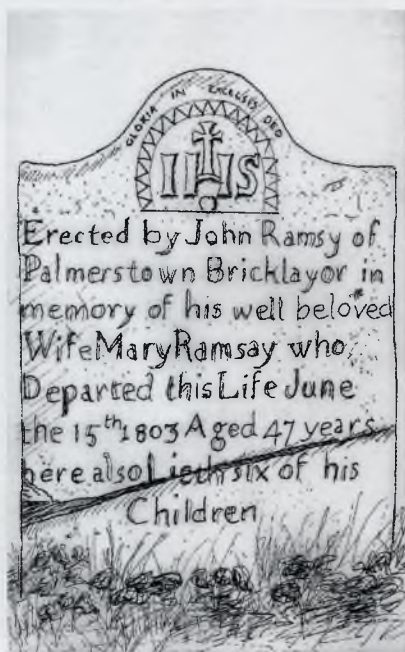 GLORIA IN EXCELSIS DEO
IHS
Erected by John Ramsy of
Palmerstown Bricklayor in
memory of his well beloved
Wife Mary Ramsay who
Departed this Life June
the 15th 1803 Aged 47 years
here also Lieth six of his
Children